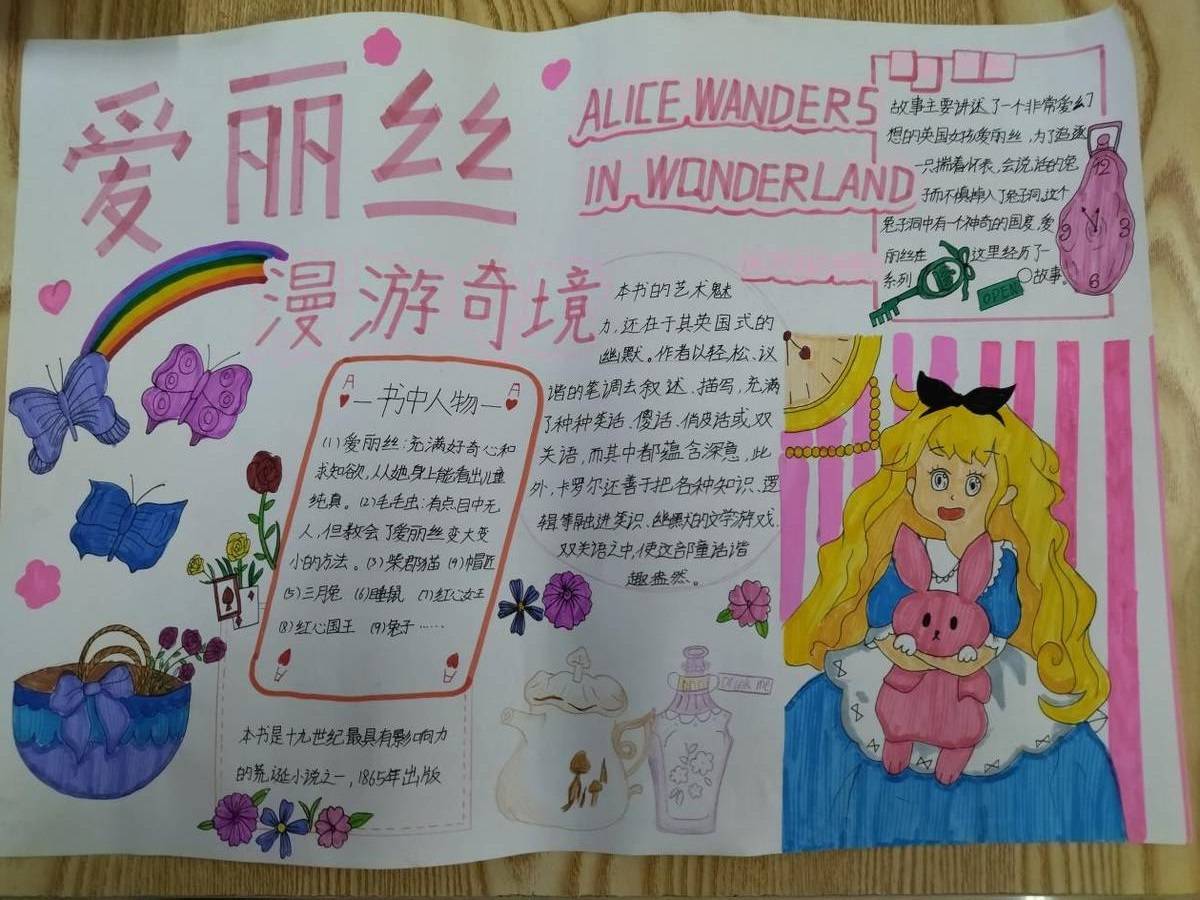 爱丽丝
漫游奇境
ALICE WANDERS
IN WONDERLAND
故事主要讲述了一个非常爱幻
想的英国女孩爱丽丝,为了追逐
一只揣着怀表,会说话的兔
子而不慎掉入了兔子洞,这个
兔子洞中有一个神奇的国度,爱
丽丝在这里经历了一
系列故事。
OPEN
12
3
6
9
本书的艺术魅
力,还在于其英国式的
幽默。作者以轻松、诙
谐的笔调去叙述、描写,充满
了种种笑话、傻话、俏皮话或双
关语,而其中都蕴含深意,此
外,卡罗尔还善于把各种知识、逻
辑等融进笑识、幽默的文学游戏、
双关语之中,使这部童话谐
趣盎然。
A
A
—书中人物—
(1)爱丽丝:充满好奇心和
求知欲,人从她身上能看出儿童
纯真。(2)毛毛虫:有点目中无
人,但教会了爱丽丝变大变
小的方法。(3)柴郡猫 (4)帽匠
(5)三月兔 (6)睡鼠 (7)红心女王
(8)红心国王 (9)兔子……
本书是十九世纪最具有影响力
的荒诞小说之一,1865年出版
DRINK ME